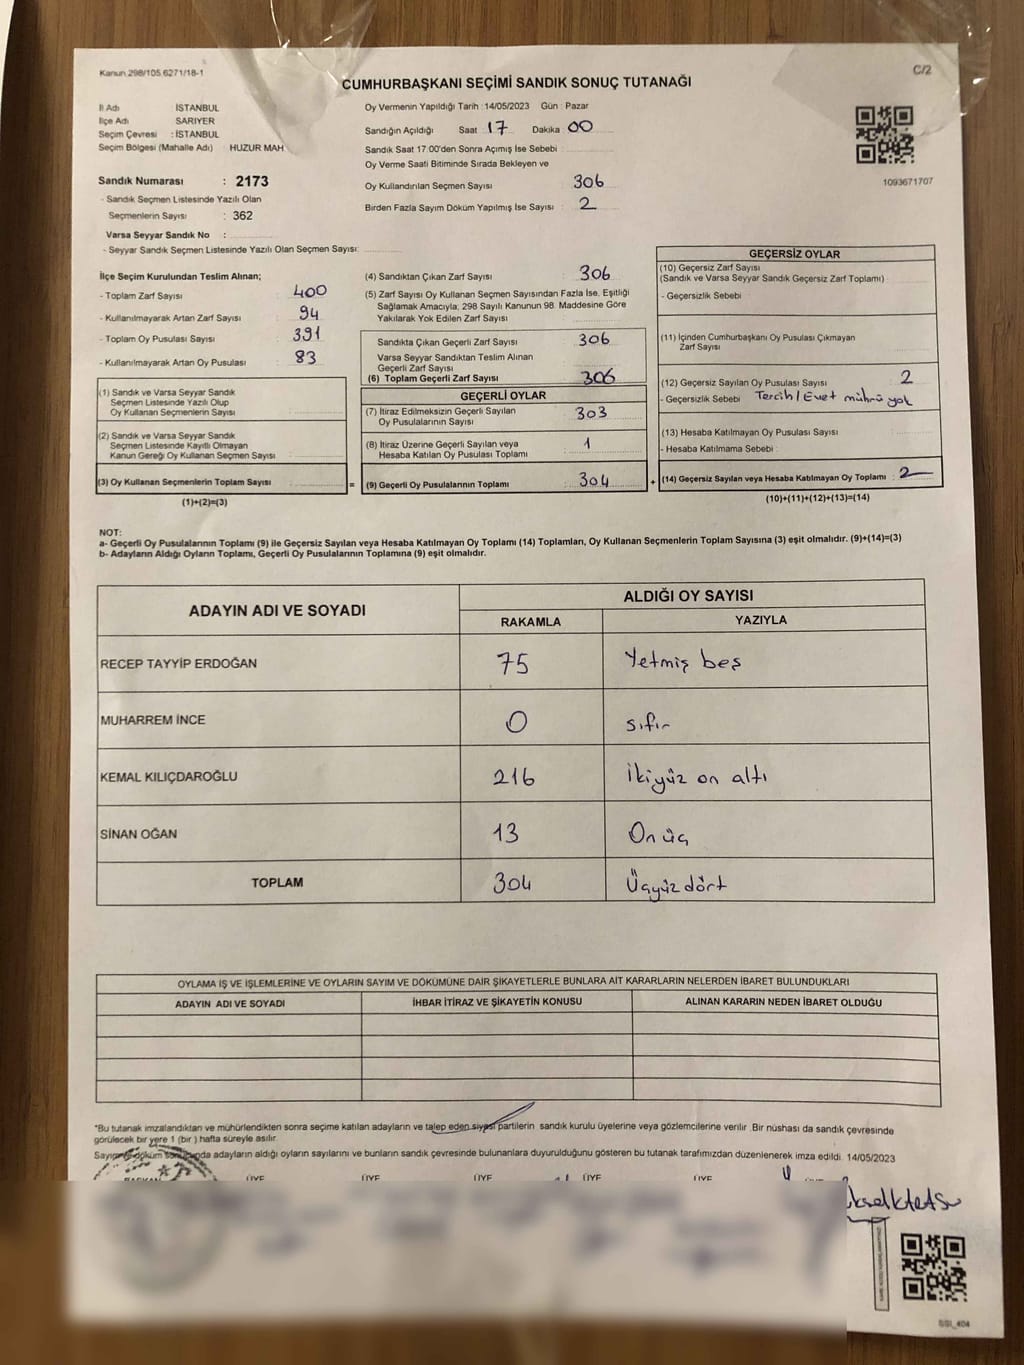 Kanun 298/105 6271/18-1
C/2
CUMHURBAŞKANI SEÇİMİ SANDIK SONUÇ TUTANAĞI
İl Adı İSTANBUL
İlçe Adı SARIYER
Seçim Çevresi : İSTANBUL
Seçim Bölgesi (Mahalle Adı) HUZUR MAH
Sandık Numarası : 2173
- Sandık Seçmen Listesinde Yazılı Olan
Seçmenlerin Sayısı : 362
Varsa Seyyar Sandık No :
- Seyyar Sandık Seçmen Listesinde Yazılı Olan Seçmen Sayısı:
Oy Vermenin Yapıldığı Tarih :14/05/2023 Gün : Pazar
Sandığın Açıldığı Saat 17 Dakika 00
Sandık Saat 17:00'den Sonra Açımış İse Sebebi
Oy Verme Saati Bitiminde Sırada Bekleyen ve
Oy Kullandırılan Seçmen Sayısı 306
Birden Fazla Sayım Döküm Yapılmış İse Sayısı 2
1093671707
İlçe Seçim Kurulundan Teslim Alınan;
- Toplam Zarf Sayısı 400
- Kullanılmayarak Artan Zarf Sayısı 94
- Toplam Oy Pusulası Sayısı 391
- Kullanılmayarak Artan Oy Pusulası 83
(1) Sandık ve Varsa Seyyar Sandık
Seçmen Listesinde Yazılı Olup
Oy Kullanan Seçmenlerin Sayısı
(2) Sandık ve Varsa Seyyar Sandık
Seçmen Listesinde Kayıtlı Olmayan
Kanun Gereği Oy Kullanan Seçmen Sayısı
(3) Oy Kullanan Seçmenlerin Toplam Sayısı
(1)+(2)=(3)
(4) Sandıktan Çıkan Zarf Sayısı 306
(5) Zarf Sayısı Oy Kullanan Seçmen Sayısından Fazla İse, Eşitliği
Sağlamak Amacıyla; 298 Sayılı Kanunun 98. Maddesine Göre
Yakılarak Yok Edilen Zarf Sayısı
Sandıkta Çıkan Geçerli Zarf Sayısı 306
Varsa Seyyar Sandıktan Teslim Alınan
Geçerli Zarf Sayısı
(6) Toplam Geçerli Zarf Sayısı 306
GEÇERLİ OYLAR
(7) İtiraz Edilmeksizin Geçerli Sayılan
Oy Pusulalarının Sayısı 303
(8) İtiraz Üzerine Geçerli Sayılan veya
Hesaba Katılan Oy Pusulası Toplamı 1
= (9) Geçerli Oy Pusulalarının Toplamı 304 +
GEÇERSİZ OYLAR
(10) Geçersiz Zarf Sayısı
(Sandık ve Varsa Seyyar Sandık Geçersiz Zarf Toplamı)
- Geçersizlik Sebebi
(11) İçinden Cumhurbaşkanı Oy Pusulası Çıkmayan
Zarf Sayısı
(12) Geçersiz Sayılan Oy Pusulası Sayısı 2
- Geçersizlik Sebebi Tercih/Evet mührü yok
(13) Hesaba Katılmayan Oy Pusulası Sayısı
- Hesaba Katılmama Sebebi :
(14) Geçersiz Sayılan veya Hesaba Katılmayan Oy Toplamı : 2
(10)+(11)+(12)+(13)=(14)
NOT:
a- Geçerli Oy Pusulalarının Toplamı (9) ile Geçersiz Sayılan veya Hesaba Katılmayan Oy Toplamı (14) Toplamları, Oy Kullanan Seçmenlerin Toplam Sayısına (3) eşit olmalıdır. (9)+(14)=(3)
b- Adayların Aldığı Oyların Toplamı, Geçerli Oy Pusulalarının Toplamına (9) eşit olmalıdır.
ADAYIN ADI VE SOYADI ALDIĞI OY SAYISI
RAKAMLA YAZIYLA
RECEP TAYYİP ERDOĞAN 75 Yetmiş beş
MUHARREM İNCE 0 sıfır
KEMAL KILIÇDAROĞLU 216 İkiyüz on altı
SİNAN OĞAN 13 On üç
TOPLAM 304 Üçyüz dört
OYLAMA İŞ VE İŞLEMLERİNE VE OYLARIN SAYIM VE DÖKÜMÜNE DAİR ŞİKAYETLERLE BUNLARA AİT KARARLARIN NELERDEN İBARET BULUNDUKLARI
ADAYIN ADI VE SOYADI İHBAR İTİRAZ VE ŞİKAYETİN KONUSU ALINAN KARARIN NEDEN İBARET OLDUĞU
*Bu tutanak imzalandıktan ve mühürlendikten sonra seçime katılan adayların ve talep eden siyasi partilerin sandık kurulu üyelerine veya gözlemcilerine verilir. Bir nüshası da sandık çevresinde
görülecek bir yere 1 (bir ) hafta süreyle asılır.
Sayım ve döküm sonucunda adayların aldığı oyların sayılarını ve bunların sandık çevresinde bulunanlara duyurulduğunu gösteren bu tutanak tarafımızdan düzenlenerek imza edildi. 14/05/2023
BAŞKAN ÜYE ÜYE ÜYE ÜYE ÜYE ÜYE
SSI_404